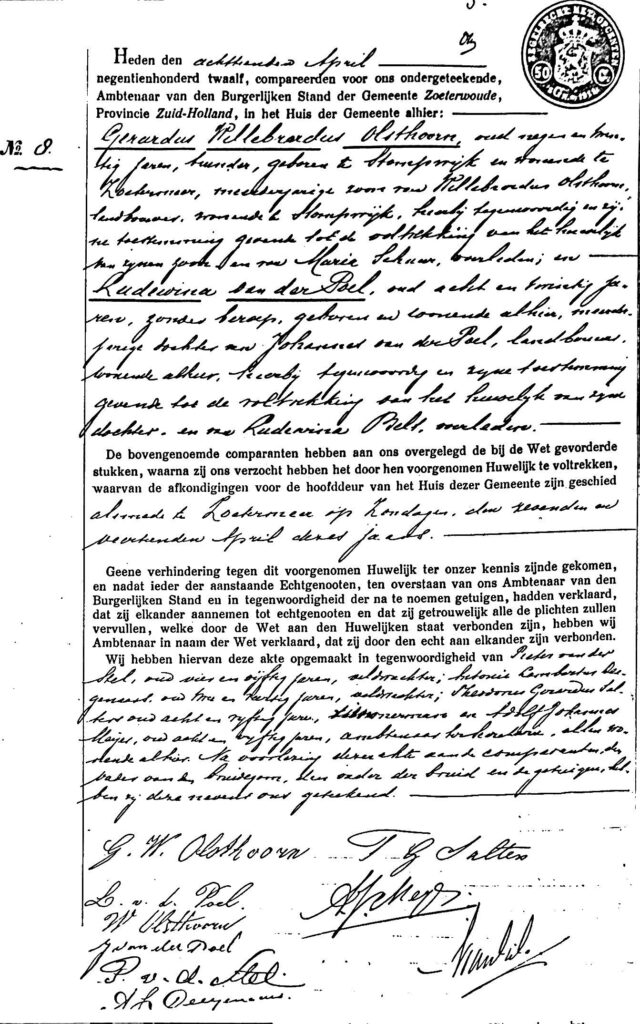 Heden den achttienden April
negentienhonderd twaalf, compareerden voor ons ondergeteekende,
Ambtenaar van den Burgerlijken Stand der Gemeente Zoeterwoude,
Provincie Zuid-Holland, in het Huis der Gemeente alhier:
No. 8.
Gerardus Willebrordus Olsthoorn, oud negen en twin-
tig jaren, geboren te Stompwijk en wonende te
Zoetermeer, meerderjarige zoon van Willebrordus Olsthoorn,
landbouwer, wonende te Stompwijk, hierbij tegenwoordig en zij-
ne toestemming gevende tot de voltrekking van het huwelijk
van zijnen zoon, en van Maria overleden; en
Ludewina van der Poel, oud acht en twintig ja-
ren, zonder beroep, geboren en wonende alhier, meerder-
jarige dochter van Johannes van der Poel, landbouwer,
wonende alhier, hierbij tegenwoordig en zijne toestemming
gevende tot de voltrekking van het huwelijk van zijne
dochter, en van Ludewina Belt, overleden.
De bovengenoemde comparanten hebben aan ons overgelegd de bij de Wet gevorderde
stukken, waarna zij ons verzocht hebben het door hen voorgenomen Huwelijk te voltrekken,
waarvan de afkondigingen voor de hoofddeur van het Huis dezer Gemeente zijn geschied
alsmede te Zoetermeer op Zondagen, den zevenden en
veertienden April dezes jaars.
Geene verhindering tegen dit voorgenomen Huwelijk ter onzer kennis zijnde gekomen,
en nadat ieder der aanstaande Echtgenooten, ten overstaan van ons Ambtenaar van den
Burgerlijken Stand en in tegenwoordigheid der na te noemen getuigen, hadden verklaard,
dat zij elkander aannemen tot echtgenooten en dat zij getrouwelijk alle de plichten zullen
vervullen, welke door de Wet aan den Huwelijken staat verbonden zijn, hebben wij
Ambtenaar in naam der Wet verklaard, dat zij door den echt aan elkander zijn verbonden.
Wij hebben hiervan deze akte opgemaakt in tegenwoordigheid van Pieter van der
Stel, oud vier en vijftig jaren, veldwachter; Antonie Lambertus
oud jaren, veldwachter; Theodorus Gerardus Sal-
ters oud acht en vijftig jaren, en Adolf Johannes
oud acht en vijftig jaren, ambtenaar ter secretarie, allen wo-
nende alhier. Na voorlezing dezer akte aan de comparanten, den
vader van den bruidegom, dien der bruid en de getuigen, heb-
ben zij deze nevens ons geteekend.
G. W. Olsthoorn
T G Salters
L. v. d. Poel
W Olsthoorn
J van der Poel
P. v. d. Stel.